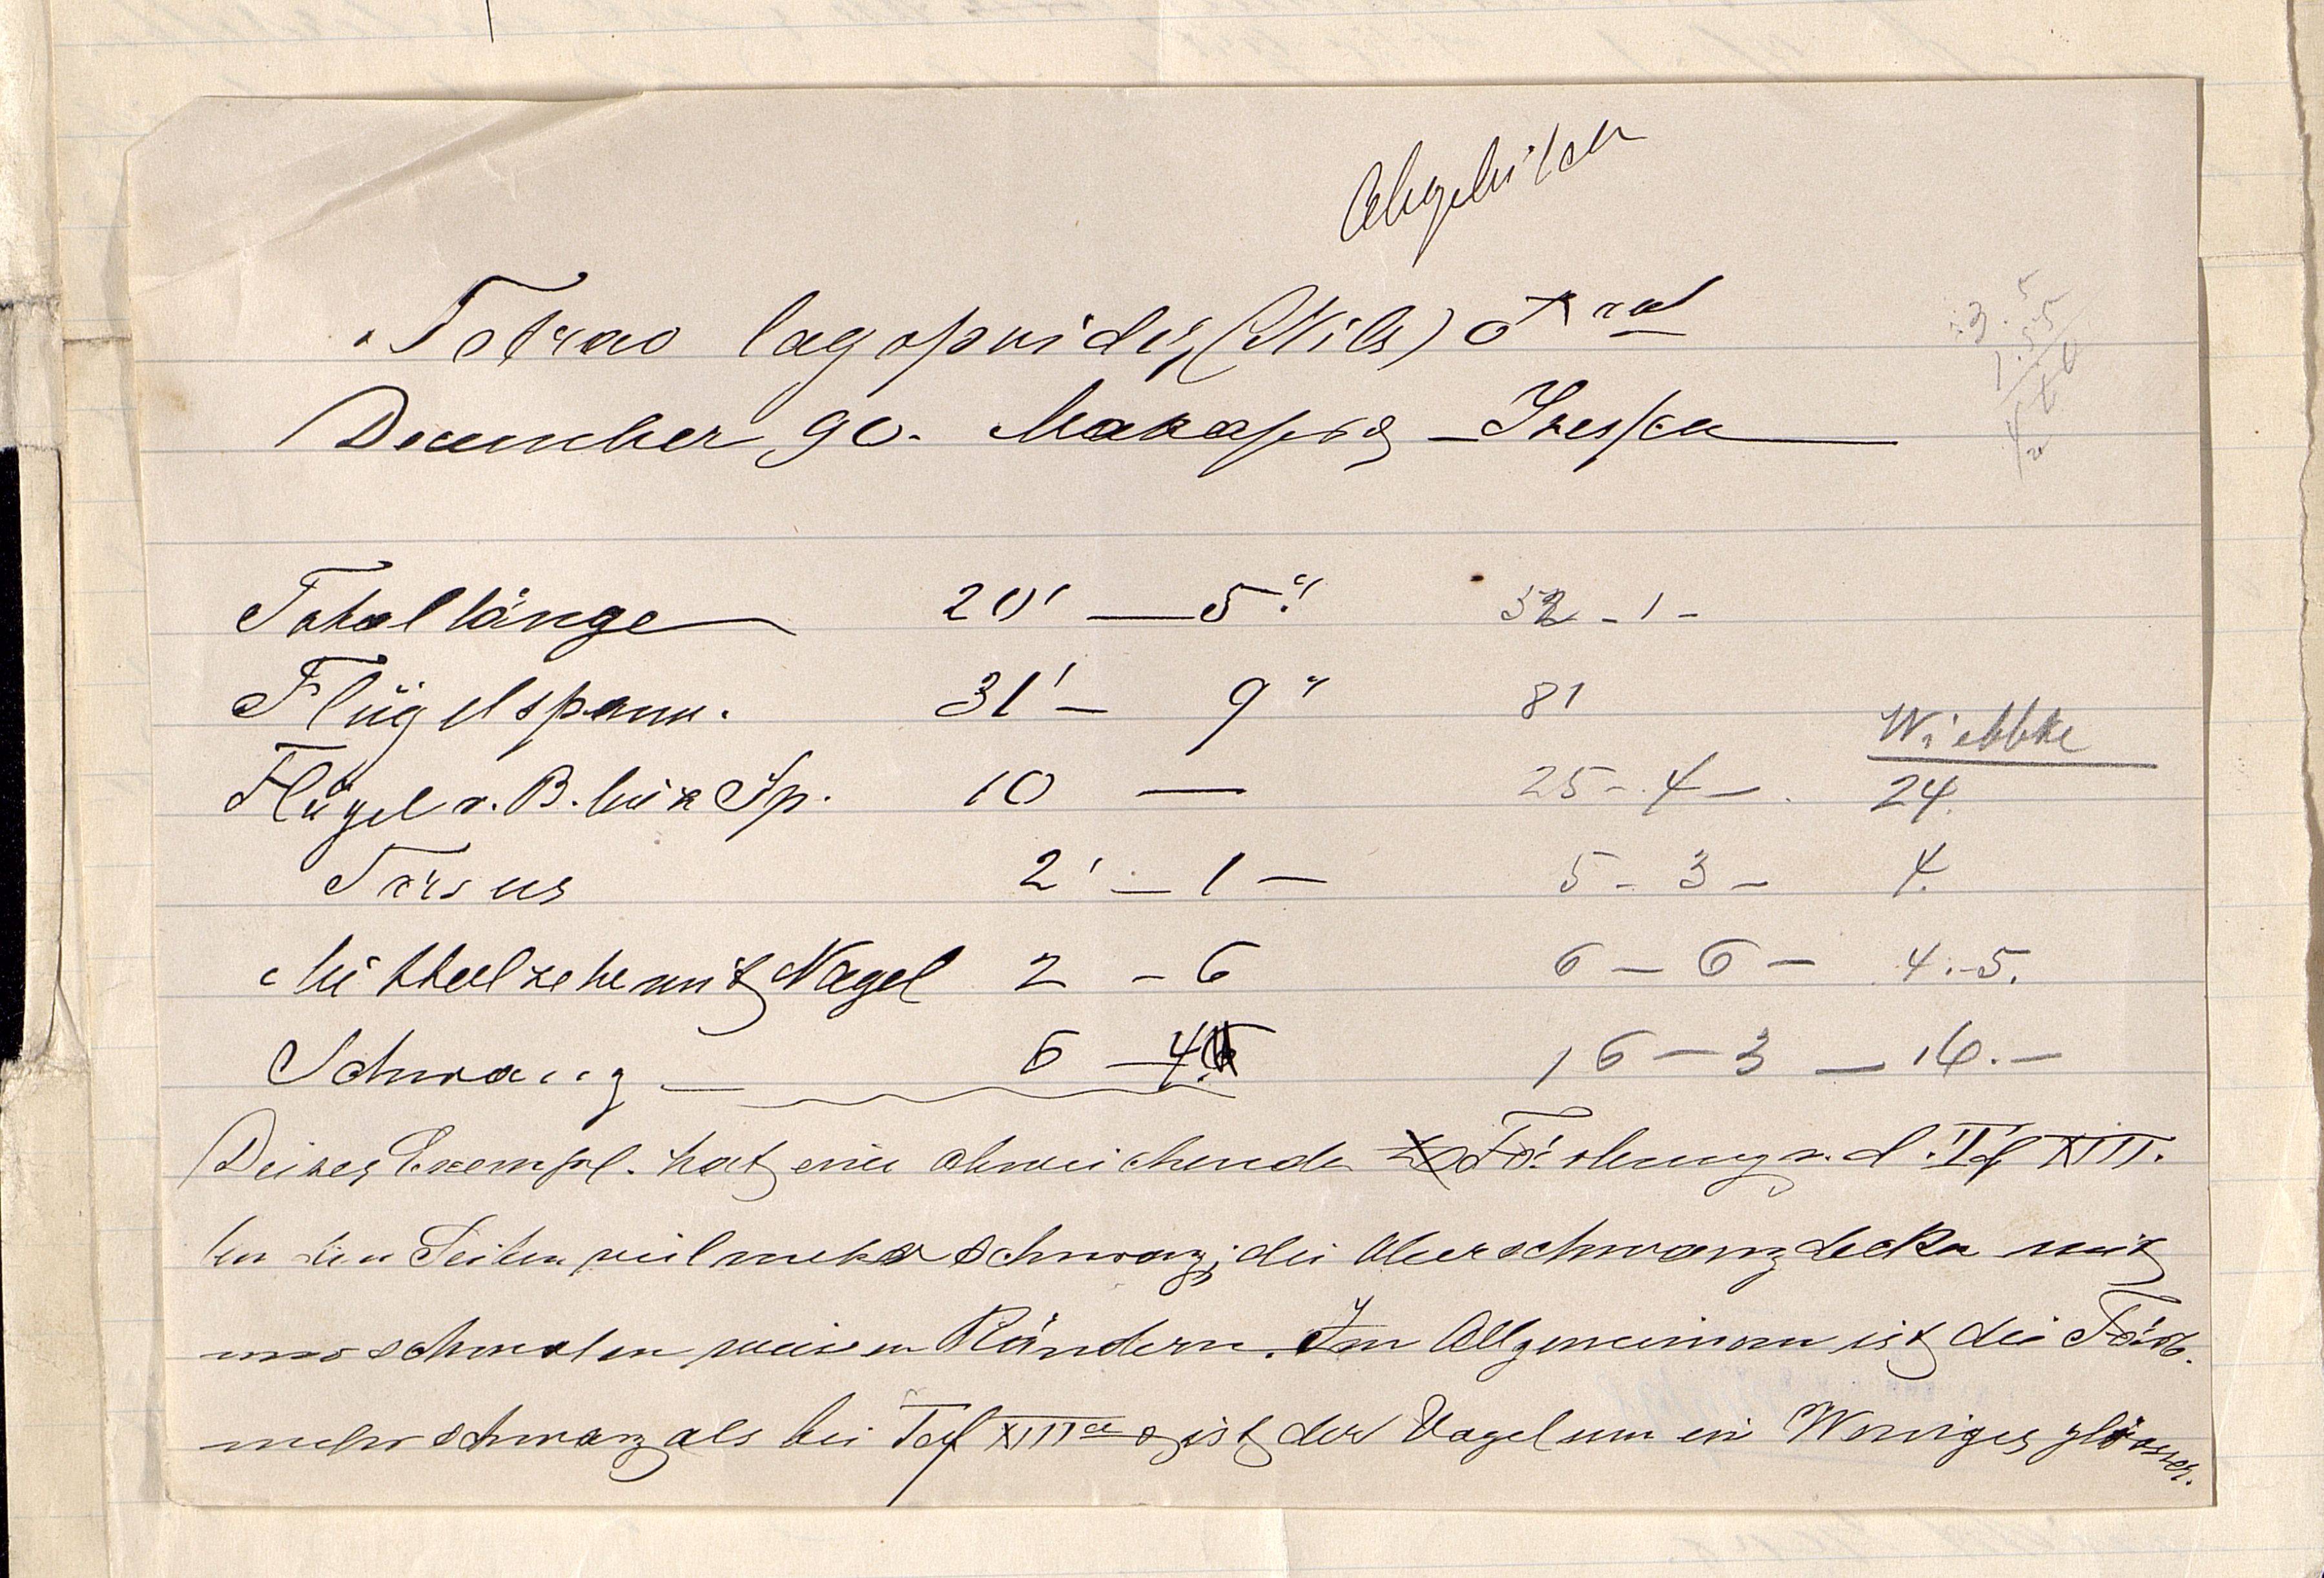 Abgebildet
Tetrao lagopoides (Nils) ♂ ad
December 90. Макарья
Totallänge 20' — 5" 52 - 1 -
Flügelspann. 31' — 9" 81
Wiebbke
Flügel v. B. bis z Sp. 10 — 25 - 4 - 24.
Tarsus 2' — 1 — 5 - 3 - 4.
Mittelzehe mit Nagel 2 - 6 6 - 6 - 4.-5.
Schwanz — 6 — 4 16 - 3 — 16. —
Deises Exempl. hat eine abweichende Färbung v. d. Tf XIII.
An den Seiten viel mehr schwarz; die Oberschwanzdecken mit
nur schmalen weissen Rändern. Im Allgemeinen ist die Färb.
mehr schwarz als bei Taf XIII a ist der Vogel um ein Weniges grösser.